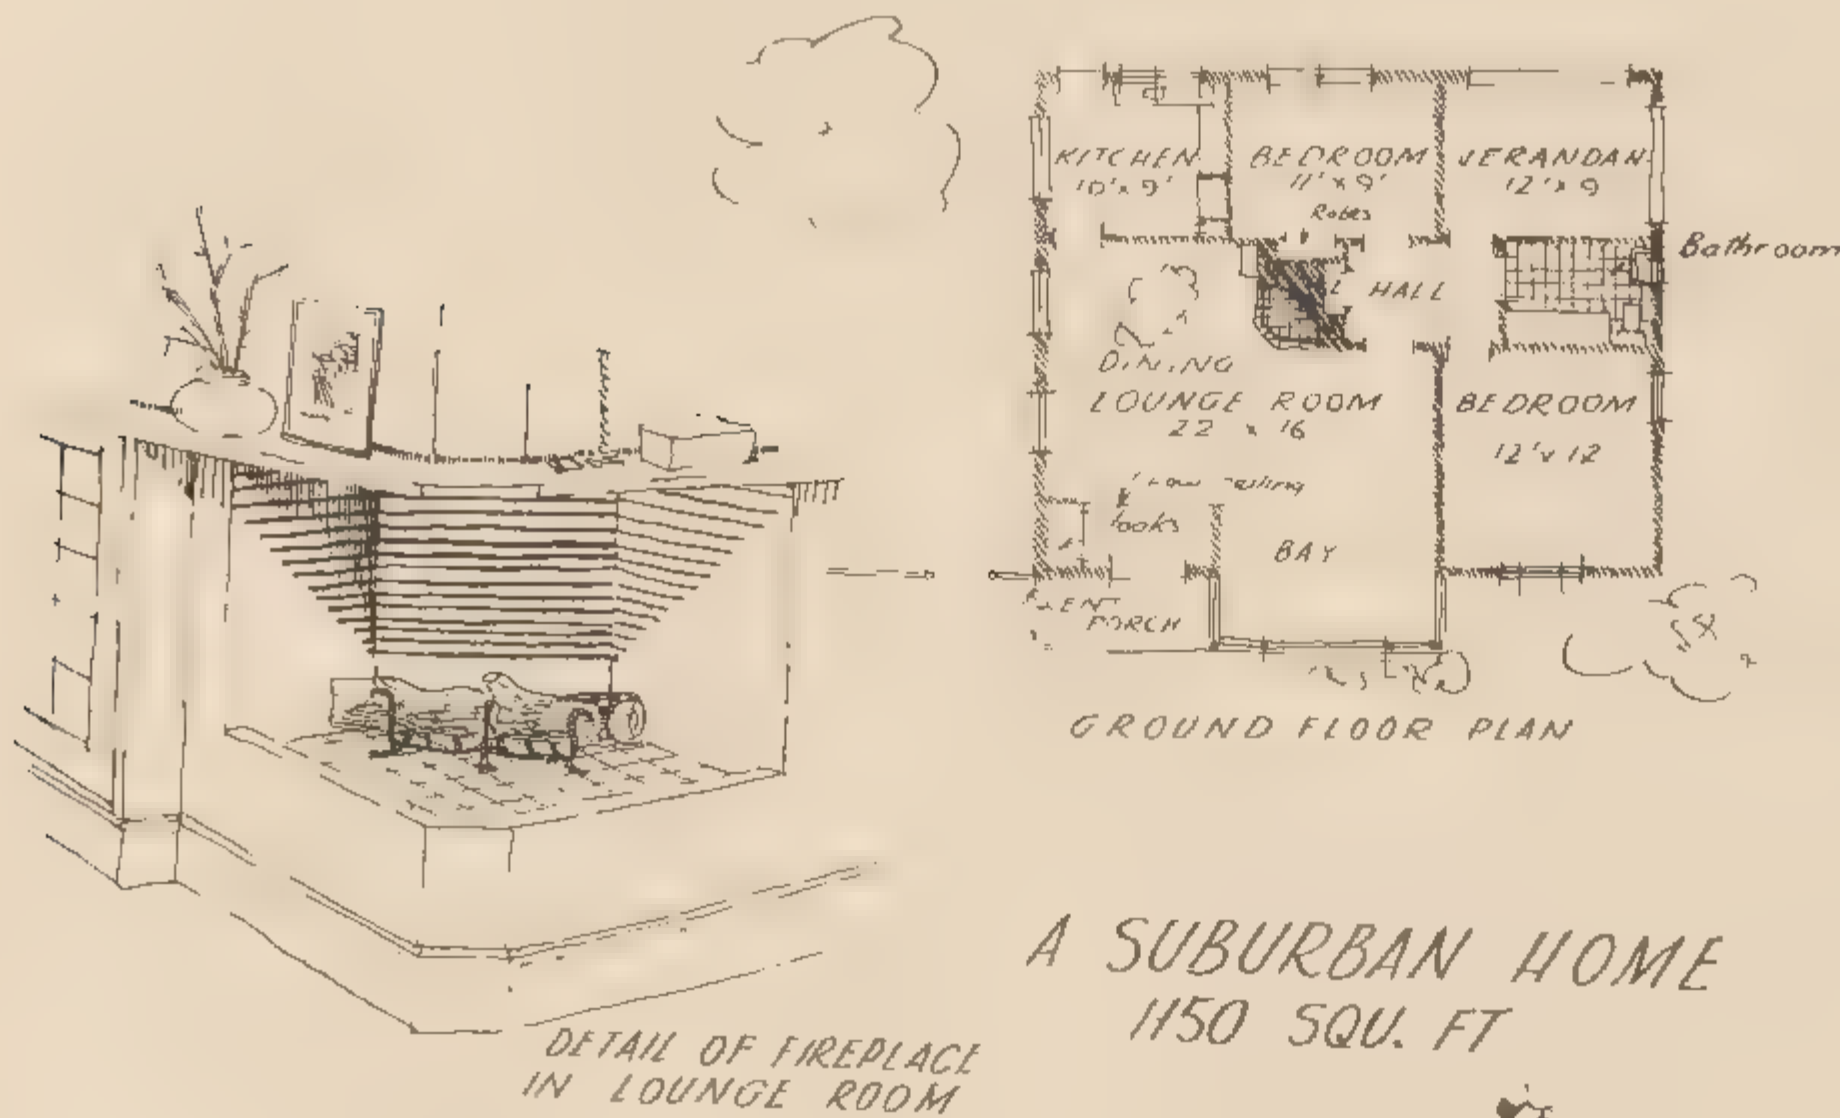 KITCHEN
10'x9'
BEDROOM
11'x9'
Robes
VERANDAH
12'x9
Bathroom
HALL
L
DINING
LOUNGE ROOM
22 x 16
BEDROOM
12'x12
BAY
PORCH
GROUND FLOOR PLAN
A SUBURBAN HOME
1150 SQU. FT
DETAIL OF FIREPLACE
IN LOUNGE ROOM